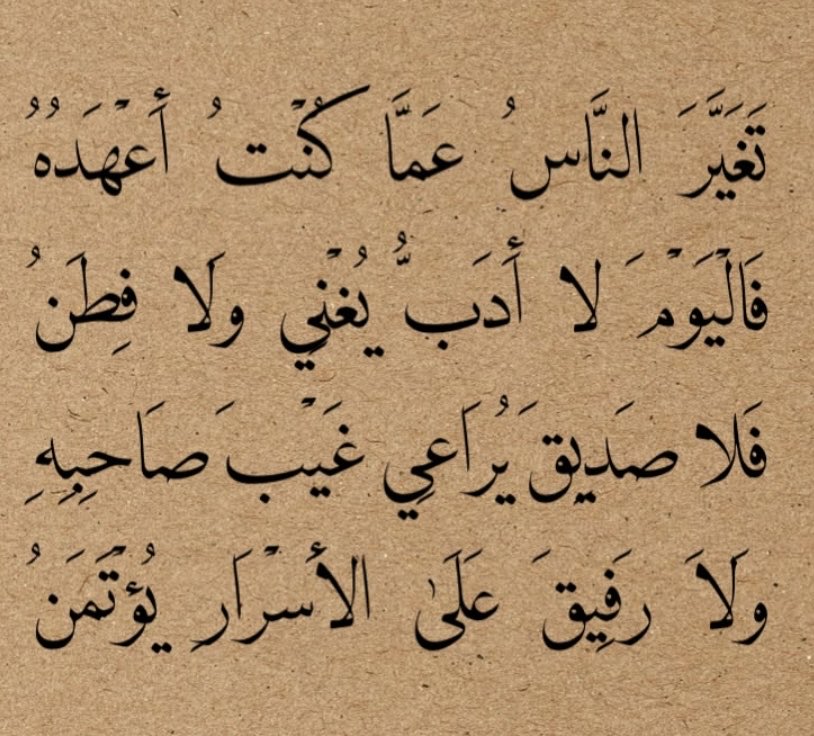 تَغَيَّرَ النَّاسُ عَمَّا كُنْتُ أَعْهَدُهُ
فَالْيَوْمَ لا أَدَبٌ يُغْنِي ولَا فِطَنُ
فَلا صَدِيقَ يُرَاعِي غَيْبَ صَاحِبِهِ
ولَا رَفِيقَ عَلَىٰ الأَسْرَارِ يُؤْتَمَنُ